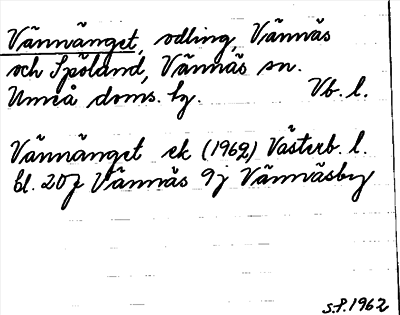 Vännänget, odling, Vännäs
och Spöland, Vännäs sn.
Umeå doms. hg. Vb. l.
Vännänget ek (1962) Västerb. l.
bl. 207 Vännäs 9j Vännäsby
S.P. 1962